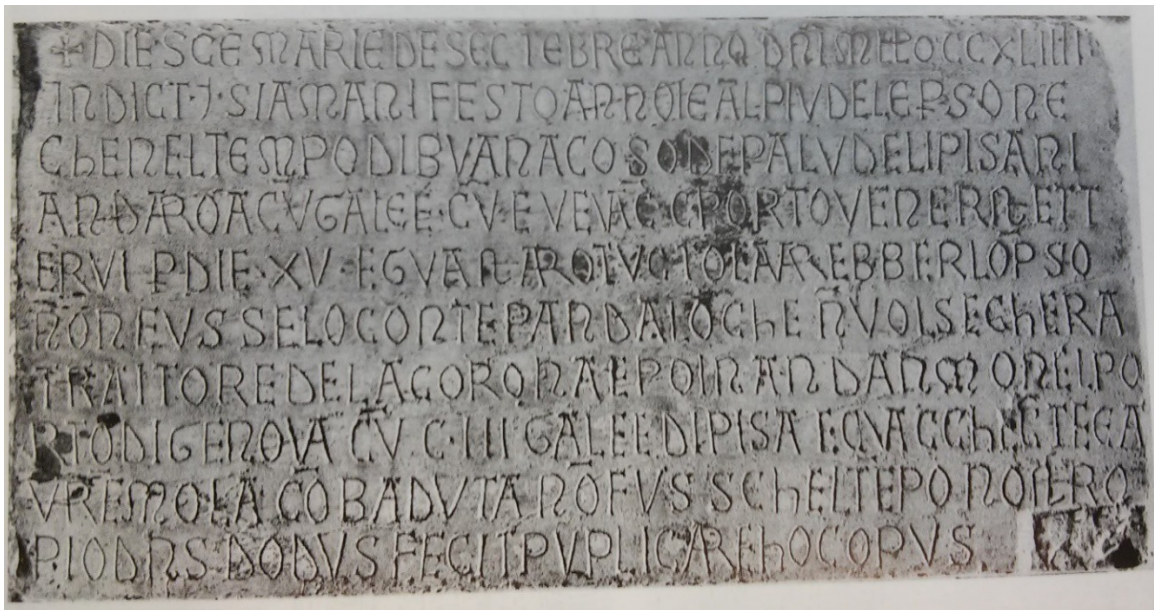 + DIE SCE MARIE DE SECTEBRE ANNO DNI MILLO CCXLIIII
INDICT · I · SIA MANIFESTO A NOI E AL PIU DE LE PSONE
CHE NEL TEMPO DI BUANACOSO DE PALUDE LI PISANI
ANDARO A CU GALEE · CV · E VEVACC · C · PORTOVENERI E STT
ERVI P DIE · XV · E GUANARO TUCTO E AREBBERLO PSO
NON E FUSSE LO CONTE PANDALO CHE N VOLSE CHERA
TRAITORE DE LA CORONA E POI N ANDAMO NEL PO
RTO DI GENOVA CU · C · III GALEE DI PISA E C VACCHECTE E A
UREMOLA COBADUTA NO FUSSE CHEL TEPO NO NERO
PIO DNS · DODUS FECIT PUPLICARE HOC OPUS